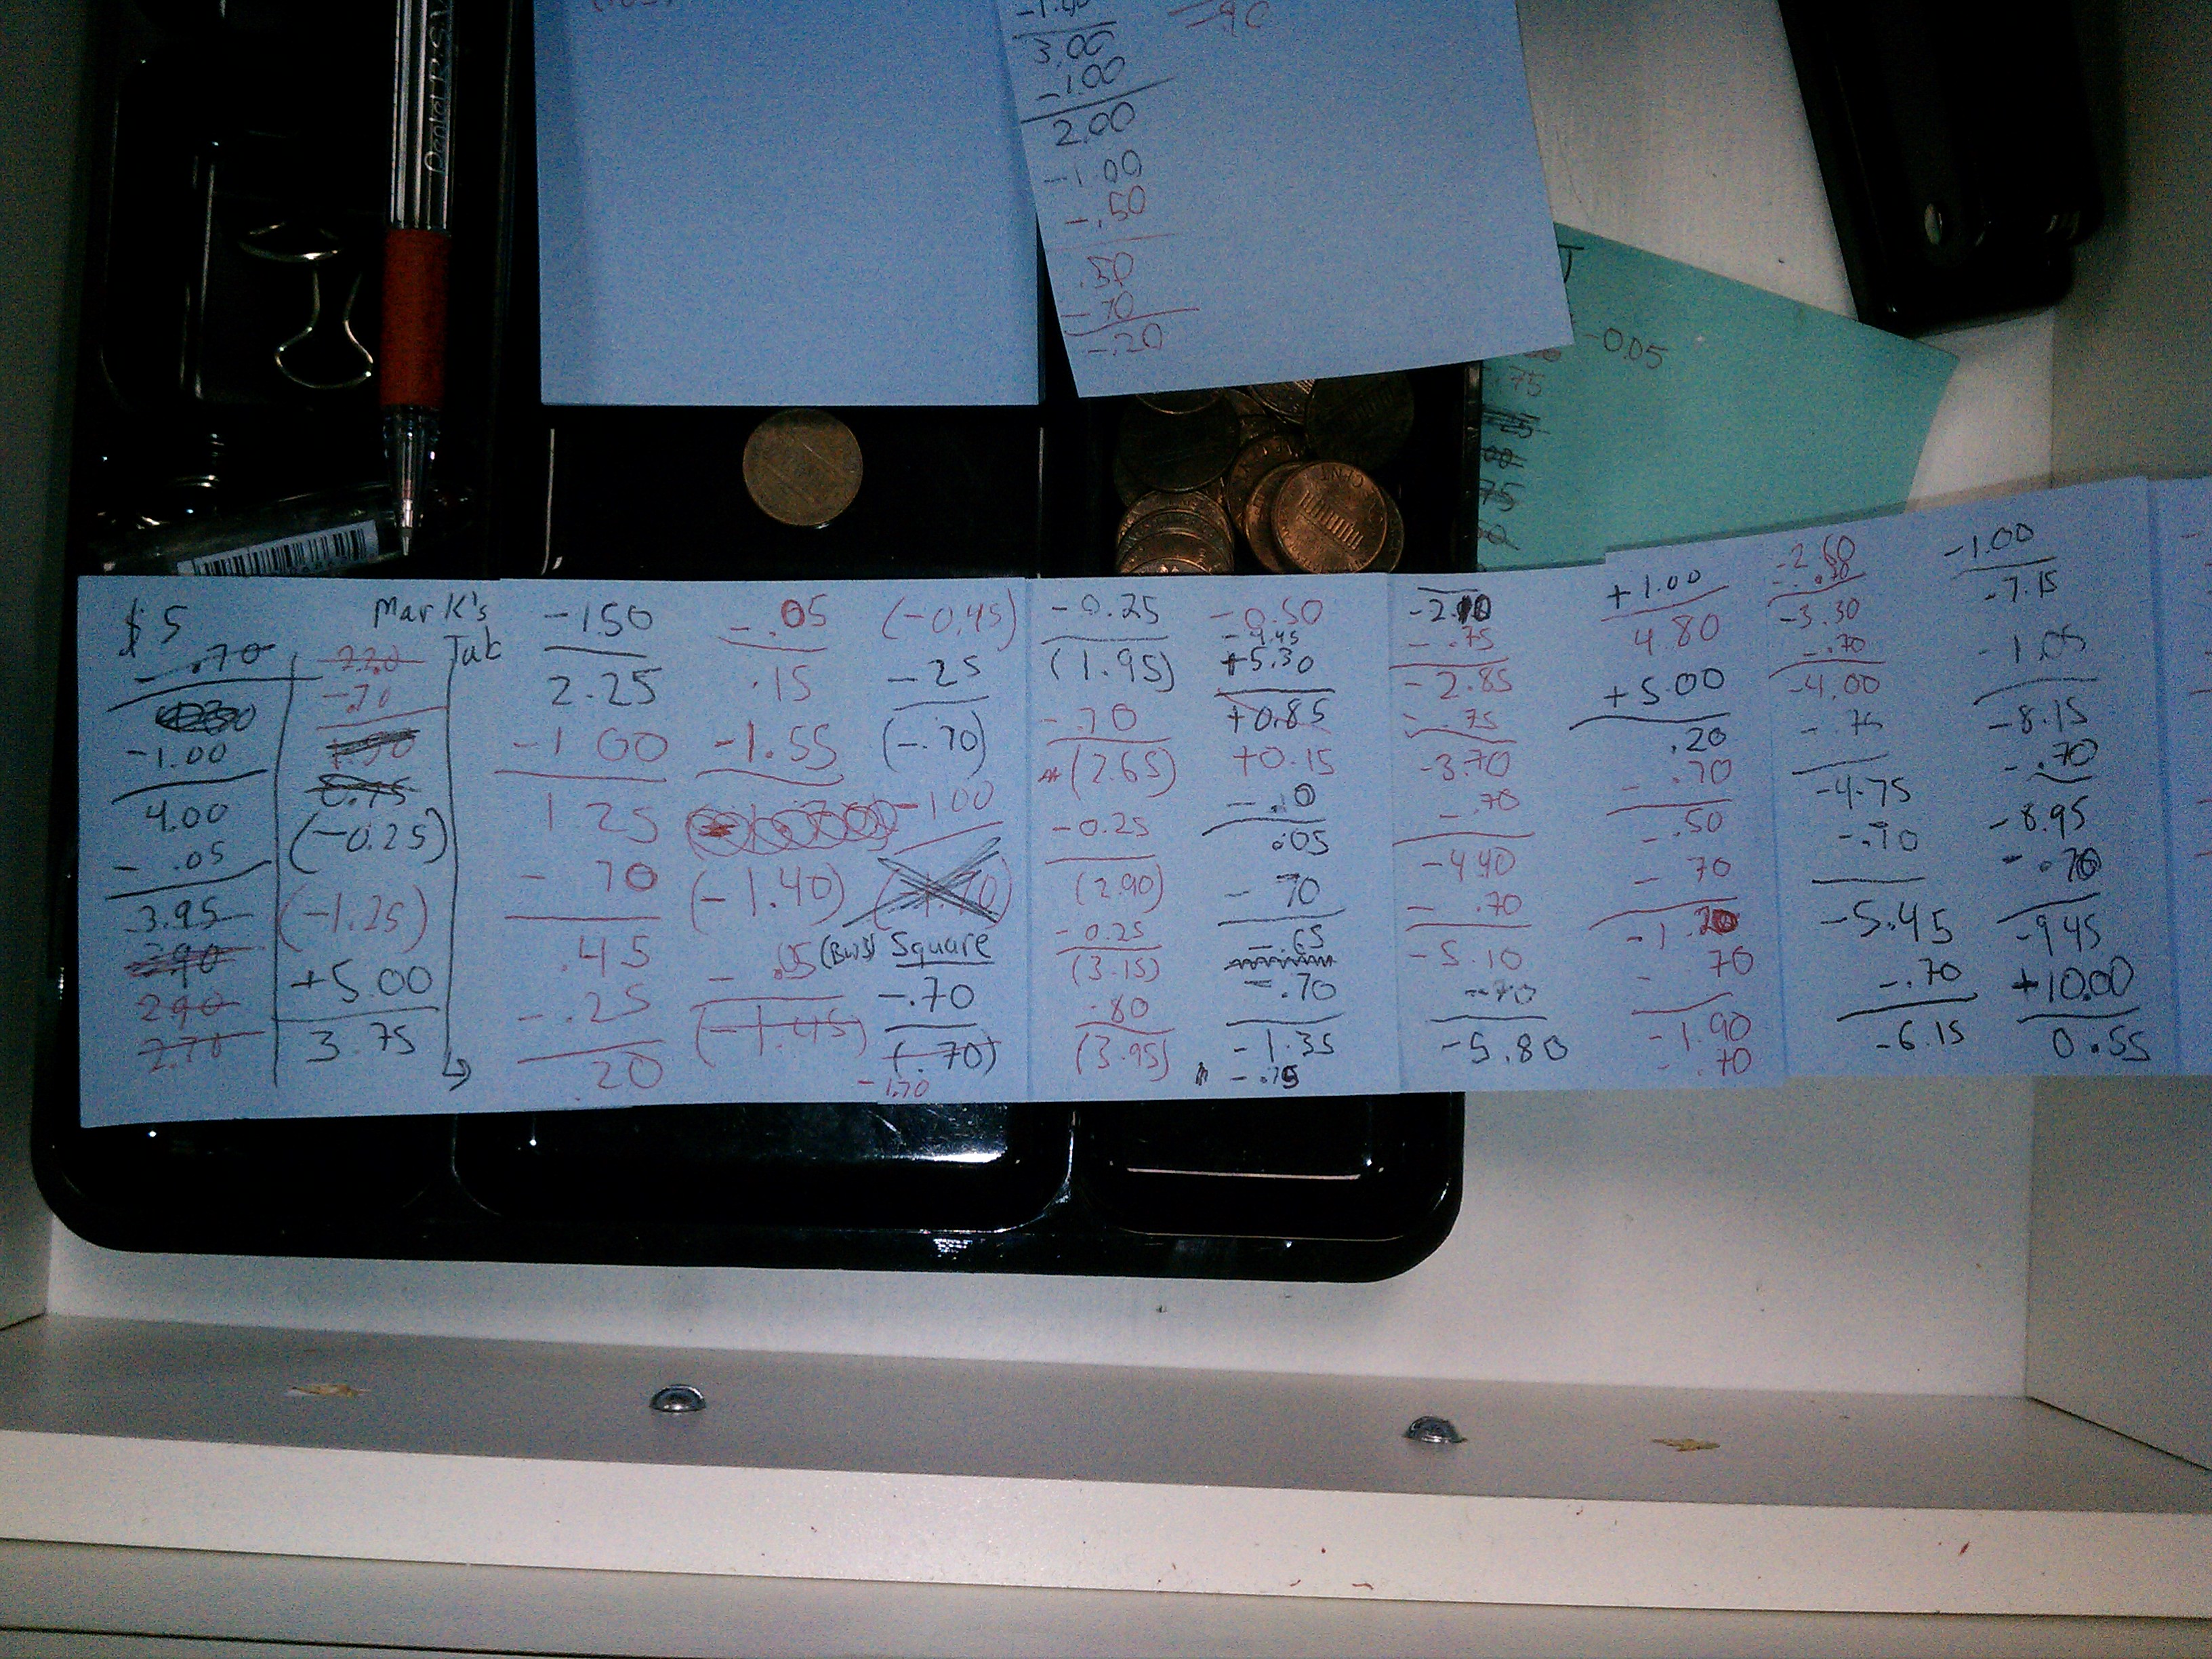 3.00
-1.00
2.00
-1.00
-.50
.50
-.70
-.20
-0.05
.75
Mark's
Tab
$5
-.70
-1.00
4.00
- .05
3.95
3.90
2.90
2.70
2.20
-.70
0.75
(-0.25)
(-1.25)
+5.00
3.75
-1.50
2.25
-1 00
1 25
- 70
.45
-.25
.20
-.05
.15
-1.55
(-1.40)
- .05
(-1.45)
(-0.45)
-25
(-.70)
-100
(BWS) Square
-.70
(.70)
-1.70
-0.25
(1.95)
-70
(2.65)
-0.25
(2.90)
-0.25
(3.15)
-80
(3.95)
-0.50
-4.45
+5.30
+0.85
+0.15
-.10
.05
- 70
-.65
-.70
-1.35
-.75
-2.10
-.75
-2.85
-.75
-3.70
-.70
-4.40
- .70
-5.10
-.70
-5.80
+1.00
4.80
+5.00
.20
- .70
-.50
- 70
-1.20
- 70
-1.90
-.70
-2.60
-.70
-3.30
-.70
-4.00
-.75
-4.75
-.70
-5.45
-.70
-6.15
-1.00
-7.15
-1.05
-8.15
-.70
-8.95
-.70
-9.45
+10.00
0.55